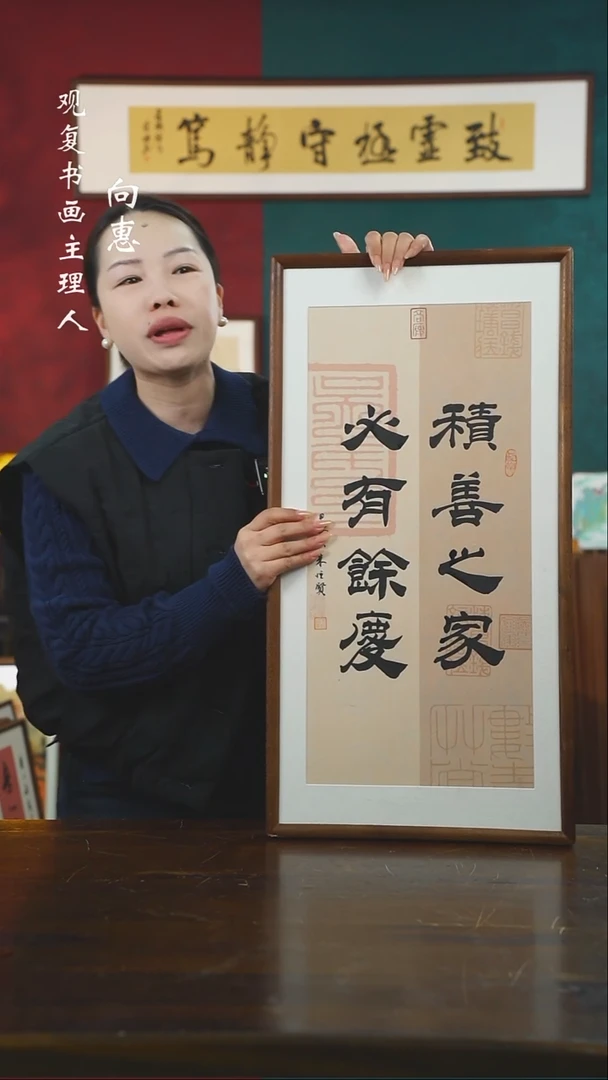 致虛極守靜篤
观复书画主理人
向惠
積善之家
必有餘慶